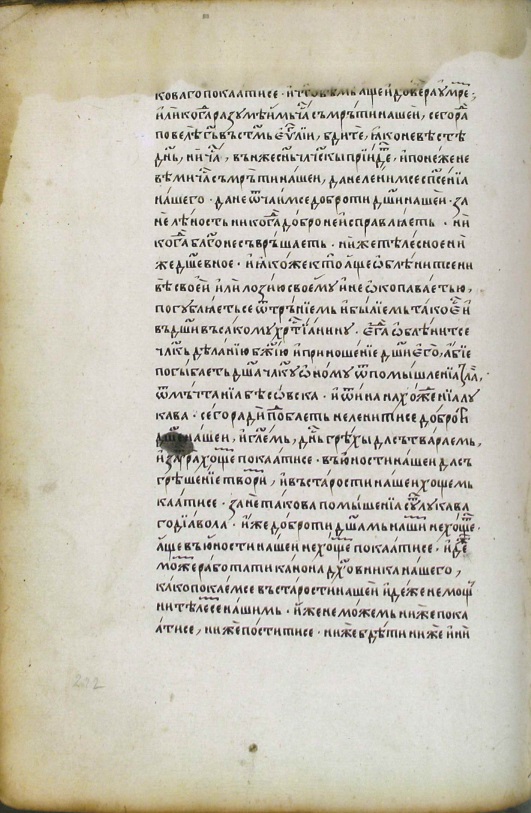 коваго покаатисе · и что вѣмь аще и до вера ꙋмре·
или когⷣа разꙋмеимь чⷭ҇а съмрьти нашеи, сего раⷣ
повелѣ гь҃ въ стѣмь еѵⷢ҇лїи, бдите, ꙗко не вѣсте
дн҃ь, ни чⷭ҇а, вънже сн҃ь чл҃чскы прїидеⷮ, и понеже не
вѣми чⷭ҇а съмрьти нашеи, да не ленимсе сп҃сенїа
нашего · да не ѿчаимсе доброти дш҃и нашеи · за
не лѣность никогⷣа добро не исправлꙗеть · ни
когⷣа бл҃го не съврьшаеть · ни же тѣлесное ни
же дш҃евное · и ꙗкоже екто аще ѡблѣнитсе ни
вѣ своеи или лозїю своемꙋ и не ѡкопавае тью,
погꙋблꙗетьсе ѿ трьнїемь и былїемь тако еⷭ҇ и
въ дш҃и въсакомꙋ хрⷭ҇тїанинꙋ · егⷣа ѡблѣнитсе
чл҃кь дѣланїю бж҃їю и приношенїе дш҃и его, абїе
погыбаеть дш҃а чл҃кꙋ ѡномꙋ ѿ помышленїа ꙁла,
ѿ мьчтанїа бѣсѡвска · и ѿ и на нахоженїа лꙋ
кава · сего ради поⷣбаеть не ленитисе доброи
дш҃е нашеи, и гл҃емь, дн҃ь грѣхы да сътвараемь,
и заꙋтра хощеⷨ покаатисе · въ юности нашеи да съ
грѣшенїе твориⷨ, и въ старости нашеи хощемь
каатисе · зане такова помышленїа сꙋⷮ лꙋкава
го дїавола · иже доброти дш҃амь нашиⷨ не хощеⷮ ·
аще въ юности нашеи не хощеⷨ покаатисе · и где
можеⷨ работати канона дх҃овника нашего,
како покаемсе въ старости нашеи идеже немощ
ни телесе нашимь · иже не можемь ниже пока
атисе, ниже поститисе · ниже бдѣти ниже ини